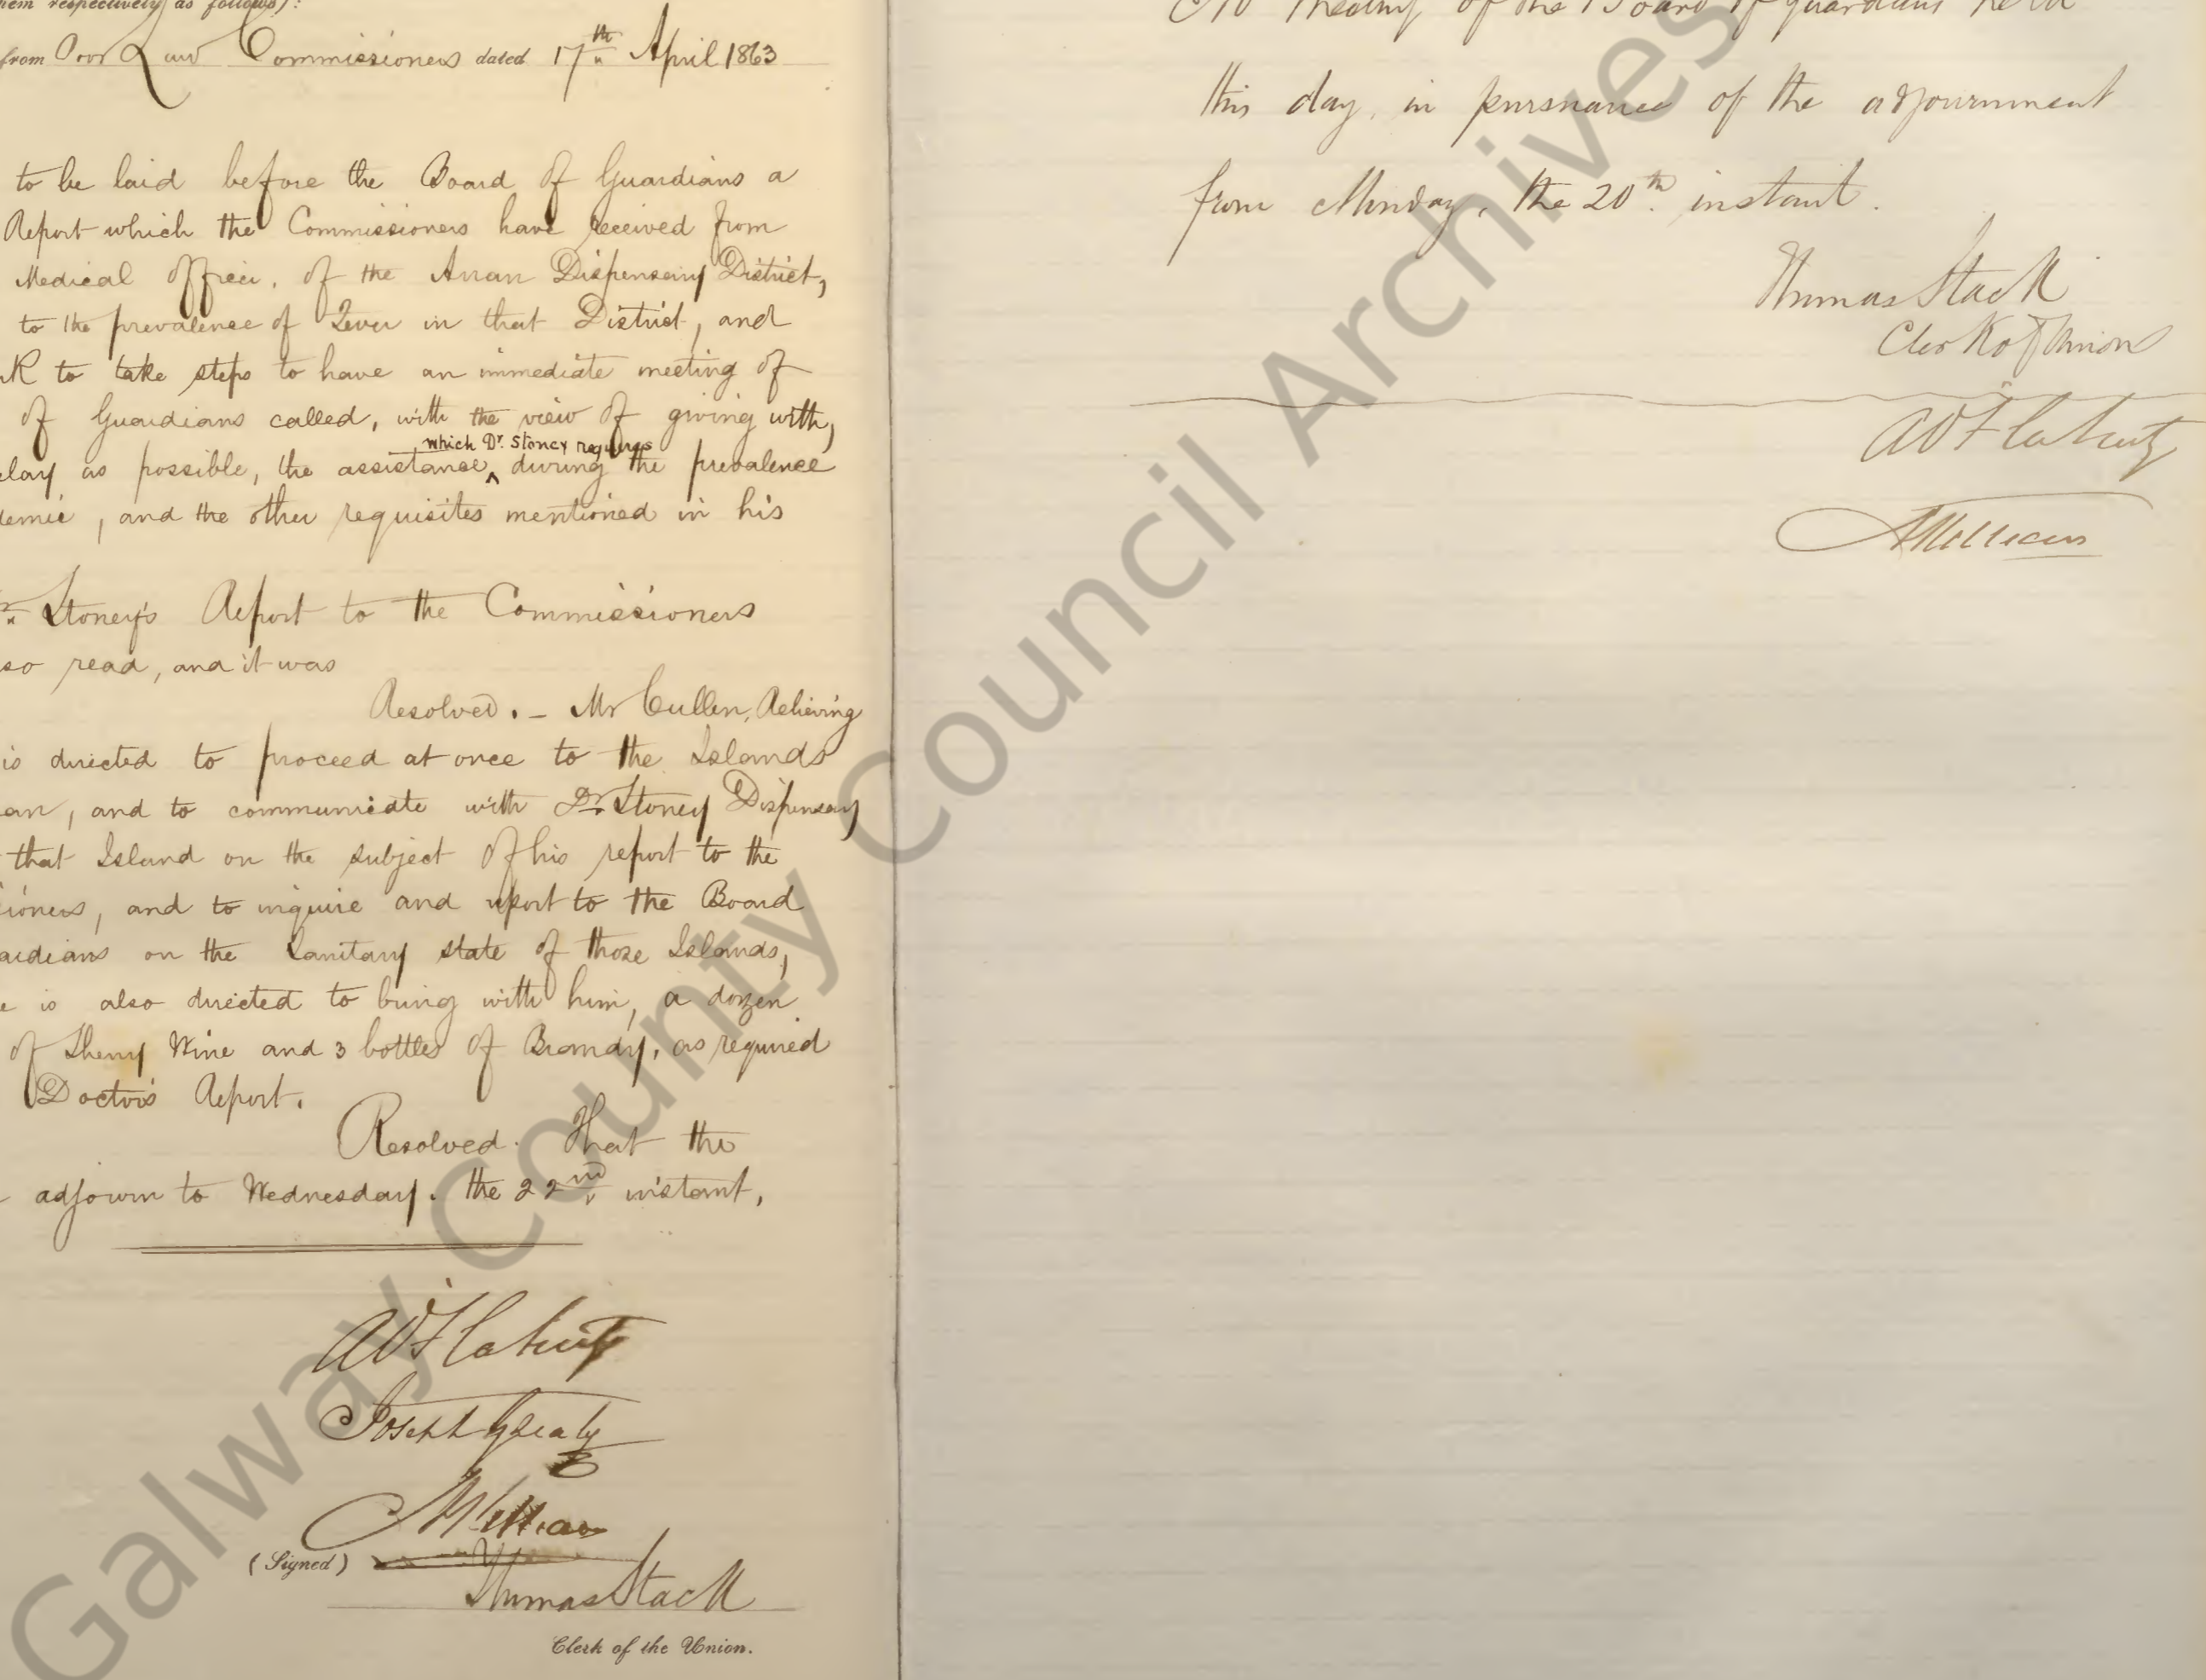 them respectively as follows):
from Poor Law Commissioners dated 17th April 1863
to be laid before the Board of Guardians a
Report which the Commissioners have received from
Medical Officer, of the Arran Dispensary District,
to the prevalence of Fever in that District, and
to take steps to have an immediate meeting of
of Guardians called, with the view of giving with,
which Dr. Stoney requires
elay as possible, the assistance ^ during the prevalence
demic, and the other requisites mentioned in his
Stoney's Report to the Commissioners
so read, and it was
Resolved. – Mr Cullen, Relieving
is directed to proceed at once to the Islands
an, and to communicate with Dr Stoney Dispensary
that Island on the subject of his report to the
ioners, and to inquire and report to the Board
ardians on the Sanitary state of those Islands,
e is also directed to bring with him, a dozen
of Sherry Wine and 3 bottles of Brandy, as required
Doctors Report.
Resolved. That the
adjourn to Wednesday. the 22nd instant,
A O'Flaherty
Joseph Grealy
(Signed)
Thomas Stack
Clerk of the Union.
No Meeting of the Board of Guardians held
this day, in pursuance of the adjournment
from Monday, the 20th. instant.
Thomas Stack
Clerk of Union
A O'Flaherty
Galway County Council Archives